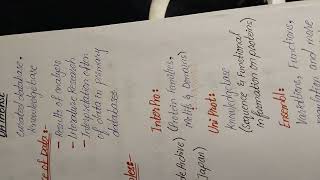 curated database,
knowledgebase
- Results of analysis
- Literature Research
- Interpretation often
of data in primary
databases
InterPro:
(Protein families,
Motifs & Domains)
UniProt:
knowledgebase
(Sequence & Functional
information on proteins)
Japan)
Ensembl:
Variations, Functions,
regulation and more